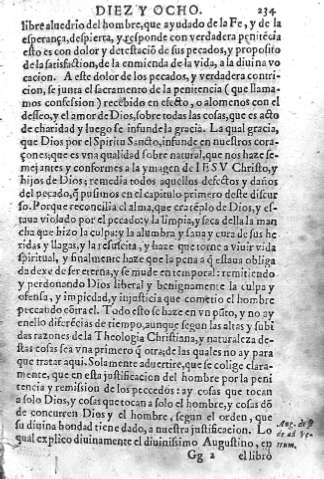 DIEZ Y OCHO. 234
libre aluedrio del hombre, que ayudado de la Fe, y de la
esperança, despierta, y responde con verdadera penitẽcia
esto es con dolor y detestaciõ de sus pecados, y proposito
de la satisfactiõn, de la enmienda de la vida, a la diuina vo
cacion. A este dolor de los pecados, y verdadera contri-
cion, se junta el sacramento de la penitencia (que llama-
mos confession) recebido en efecto, o alomenos con el
desseo, y el amor de Dios, sobre todas las cosas, que es acto
de charidad y luego se infunde la gracia. La qual gracia,
que Dios por el Spiritu Sancto, infunde en nuestros cora-
çones, que es vna qualidad sobre natural, que nos haze se-
mejantes y conformes a la ymagen de IESV Christo, y
hijos de Dios; remedia todos aquellos defectos y daños
del pecado, q̃ pusimos en el capitulo primero deste discur
so. Porque reconcilia el alma, que es tẽplo de Dios, y es-
taua violado por el pecado: y la limpia, y saca della la man
cha que hizo la culpa: y la alumbra y sana y cura de sus he
ridas y llagas, y la resuscita, y haze que torne a viuir vida
spiritual, y finalmente haze que la pena a q̃ estaua obliga
da dexe de ser eterna, y se mude en temporal: remitiendo
y perdonando Dios liberal y benignamente la culpa y
ofensa, y impiedad, y injusticia que cometio el hombre
peccando cõtra el. Todo esto se haze en vn pũto, y no ay
en ello diferẽcias de tiempo, aunque segun las altas y subi
das razones de la Theologia Christiana, y naturaleza de
stas cosas sea vna primero q̃ otra; de las quales no ay para
que tratar aqui. Solamente aduertire, que se colige clara-
mente, que en esta justificacion del hombre por la peni
tencia y remission de los peccedos: ay cosas que tocan
a solo Dios, y cosas que tocan a solo el hombre, y cosas dõ
de concurren Dios y el hombre, segun el orden, que
su diuina bondad tiene dado, a nuestra justificacion. Lo
qual explico diuinamente el diuinissimo Augustino, en
Aug. de
Gg 2 el libro